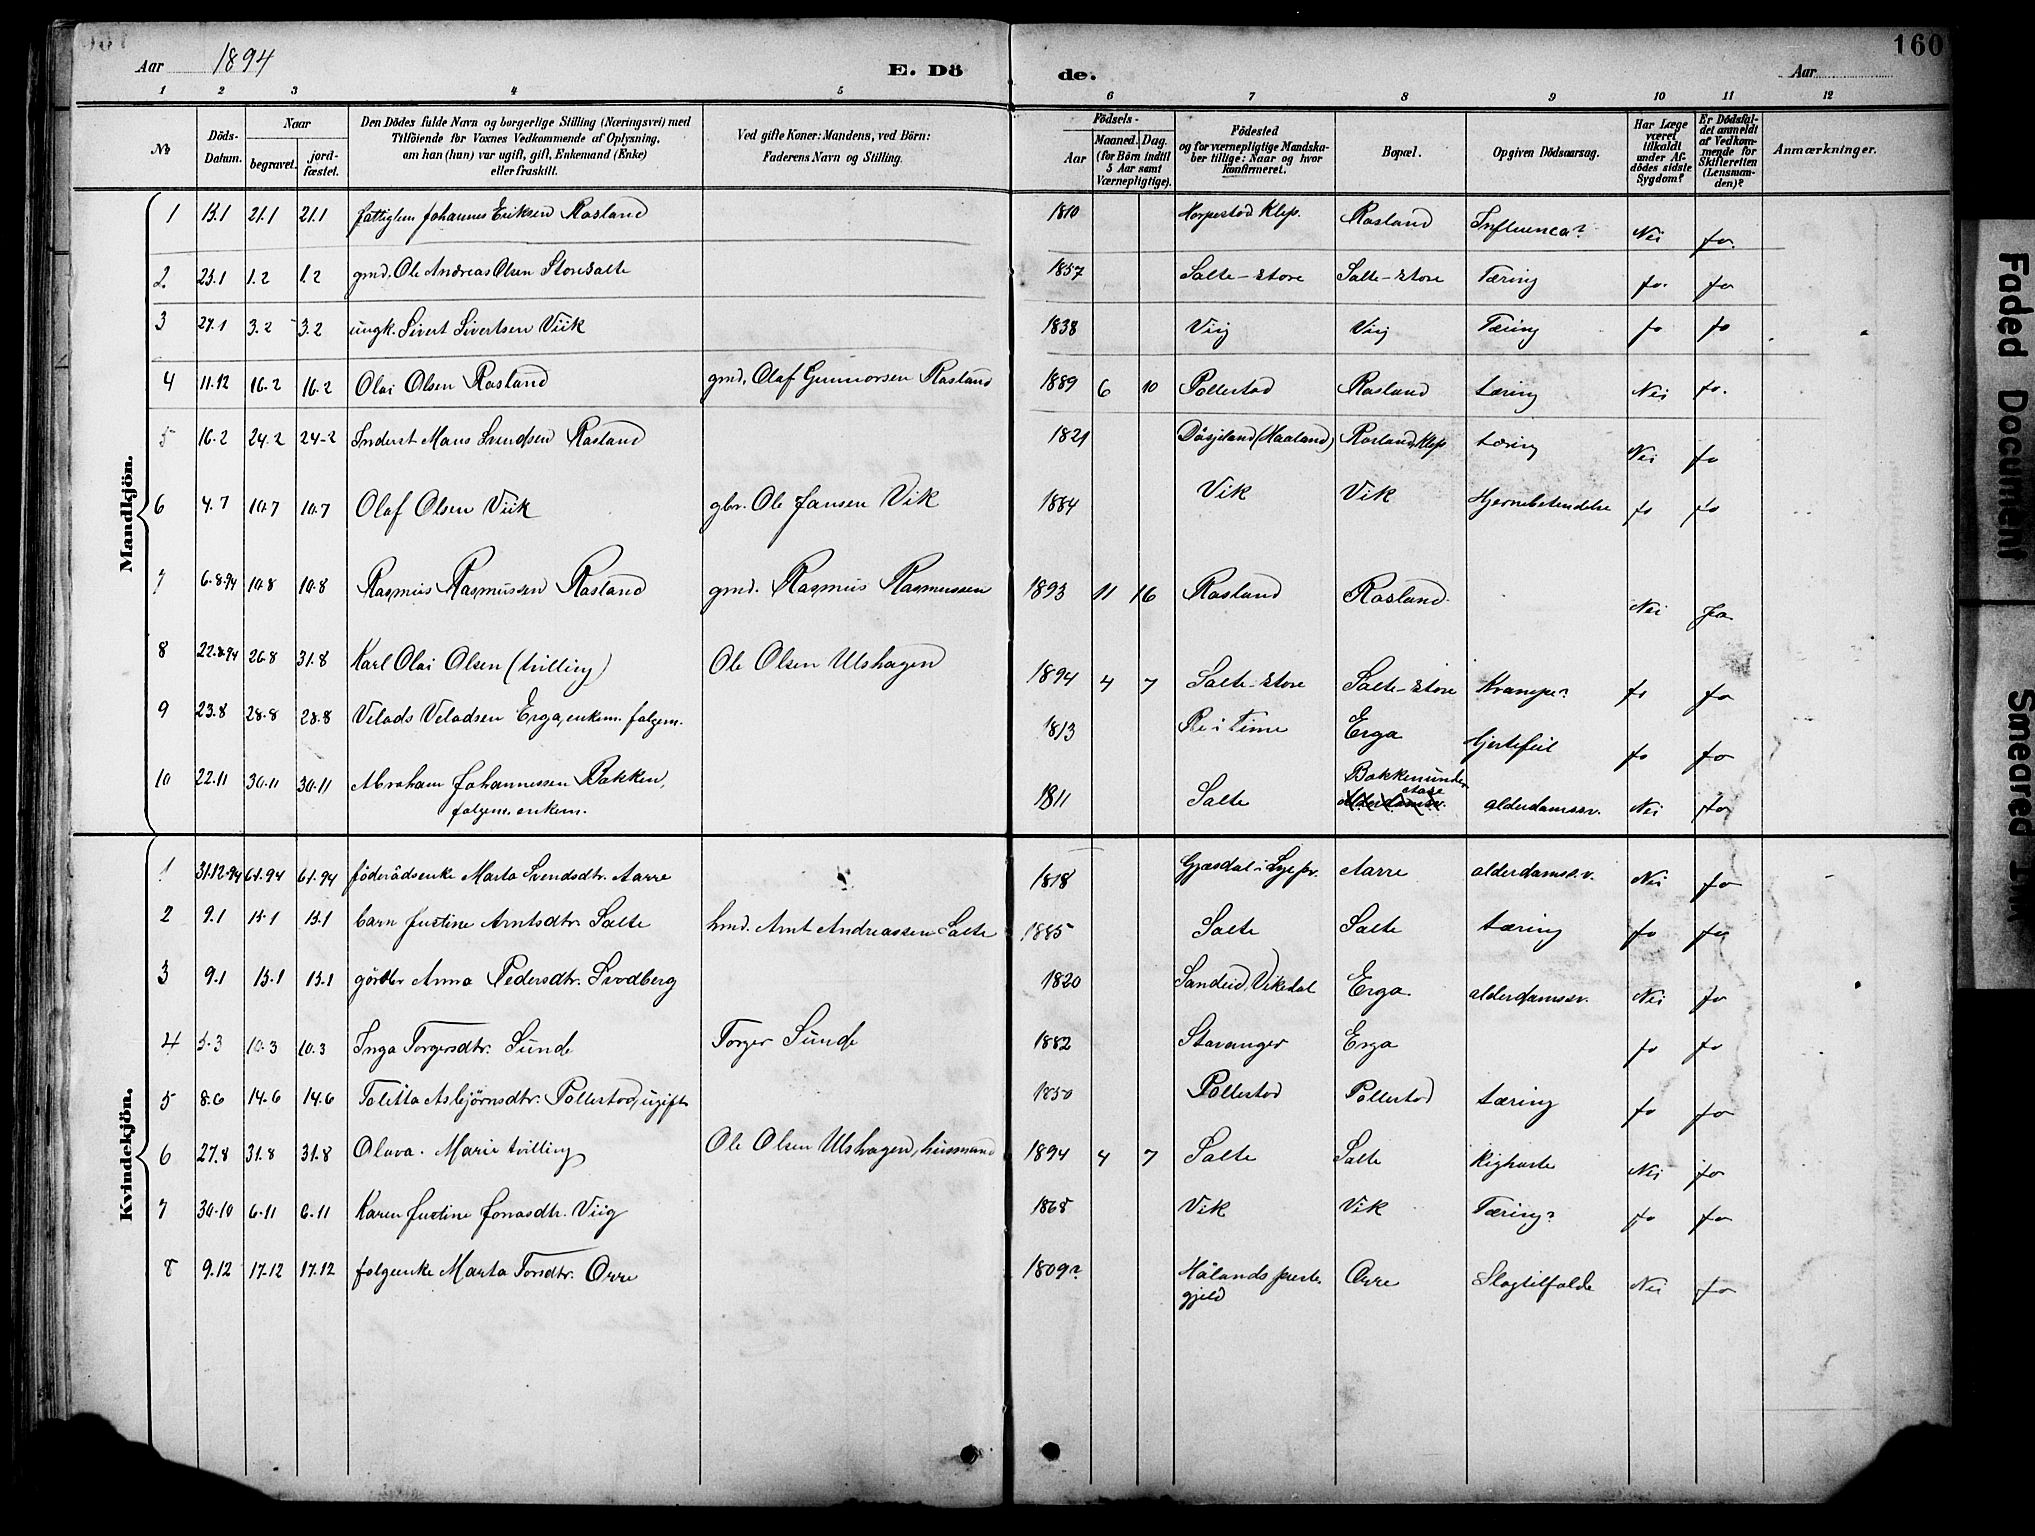 160
Aar 1894
E. Dö
de.
Aar
1 2 3 4 5 6 7 8 9 10 11 12
№
Döds-Datum.
Naar
begravet.
jord-fæstet.
Den Dödes fulde Navn og borgerlige Stilling (Næringsvei) med
Tilföiende for Voxnes Vedkommende af Oplysning,
om han (hun) var ugift, gift, Enkemand (Enke)
eller fraskilt.
Ved gifte Koner: Mandens, ved Börn:
Faderens Navn og Stilling.
Födsels-
Aar
Maaned. Dag.
(for Börn indtil
5 Aar samt
Værnepligtige).
Födested
og for værnepligtige Mandska-
ber tillige: Naar og hvor
konfirmeret.
Bopæl.
Opgiven Dödsaarsag.
Har Læge
været
tilkaldt
under Af-
dödes sidste
Sygdom?
Er Dödsfal-
det anmeldt
af Vedkom-
mende for
Skifteretten
(Lensman-
den)?
Anmærkninger.
Mandkjön.
1 13.1 21.1 21.1 fattiglem Johannes Eriksen Rosland 1810 Horpestad Klep. Rosland Influenca? Nei Ja.
2. 25.1 1.2 1.2 gmd. Ole Andreas Olsen Storesalte 1857 Salte-store Salte-store Tæring Ja. Ja
3 27.1 3.2 3.2 ungk. Sivert Sivertsen Viik 1838 Viig Viig Tæring Ja Ja
4 11.12 16.2 16.2 Olai Olsen Rosland gmd. Olaf Gunnarsen Rosland 1889 6 10 Pollestad Rosland tæring Nei Ja.
5 16.2 24.2 24-2 Inderst Maus Svendsen Rosland 1821 (Haaland) Rosland, Klep tæring Nei Ja
6 4.7 10.7 10.7 Olaf Olsen Viik gbr. Ole Jansen Vik 1884 Vik Vik Hjernebetendelse Ja Ja
7 6.8.94 10.8 10.8 Rasmus Rasmussen Rosland gmd. Rasmus Rasmussen 1893 11 16 Rosland Rosland Nei Ja
8 22.8.94 26.8 31.8 Karl Olai Olsen (tvilling) Ole Olsen Ulshagen 1894 4 7 Salte-store Salte-store Krampe? Ja Ja
9 23.8 28.8 28.8 Velads Veladsen Erga, enkem. folgem. 1813 Re i Time Erga Hjertefeil Ja Ja
10 22.11 30.11 30.11 Abraham Johannessen Bakken, 1811 Salte Bakken under alderdomssv. Nei Ja
folgem. enkem.
Kvindekjön.
1 31.12.94 6.1.94 6.1.94 föderådsenke Marta Svendsdtr. Aarre 1818 Gjæsdal i Lye pr. Aarre alderdoms.v. Nei Ja
2 9.1 15.1 15.1 barn Justine Arntsdtr. Salte hmd. Arnt Andreassen Salte 1885 Salte Salte tæring Ja Ja
3 9.1 15.1 15.1 Anna Pedersdtr. 1820 Sandeid, Vikedal Erga. alderdomssv. Nei Ja
4 5.3 10.3 10.3 Inga Torgersdtr. Sunde Torger Sunde 1882 Stavanger Erga Ja Ja
5 8.6 14.6 14.6 Talitta Asbjørnsdtr. Pollestad, ugift 1850 Pollestad Pollestad tæring Ja Ja
6 27.8 31.8 31.8 Olava. Marie tvilling Ole Olsen Ulshagen, husmand 1894 4 7 Salte Salte Kighoste Nei Ja
7 30.10 6.11 6.11 Karen Justine Jonasdtr. Viig 1868 Vik Vik Tæring? Ja Ja
8 9.12 17.12 17.12 folgeenke Marta Torsdtr. Orre 1809? Hålands preste- Orre Slagtilfælde Nei Ja
gjeld
Faded Document
Smeared Ink